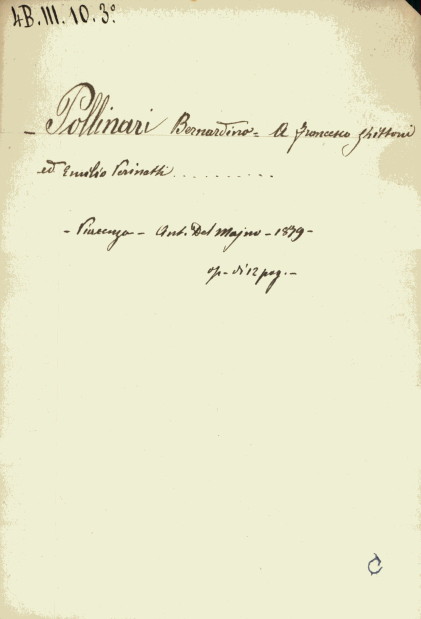 4B.III.10.3°
- Pollinari Bernardino = A Francesco Ghittoni
ed Emilio Perinetti ..........
- Piacenza - Ant. Del Majno - 1879 -
op - di 12 pag. -
C